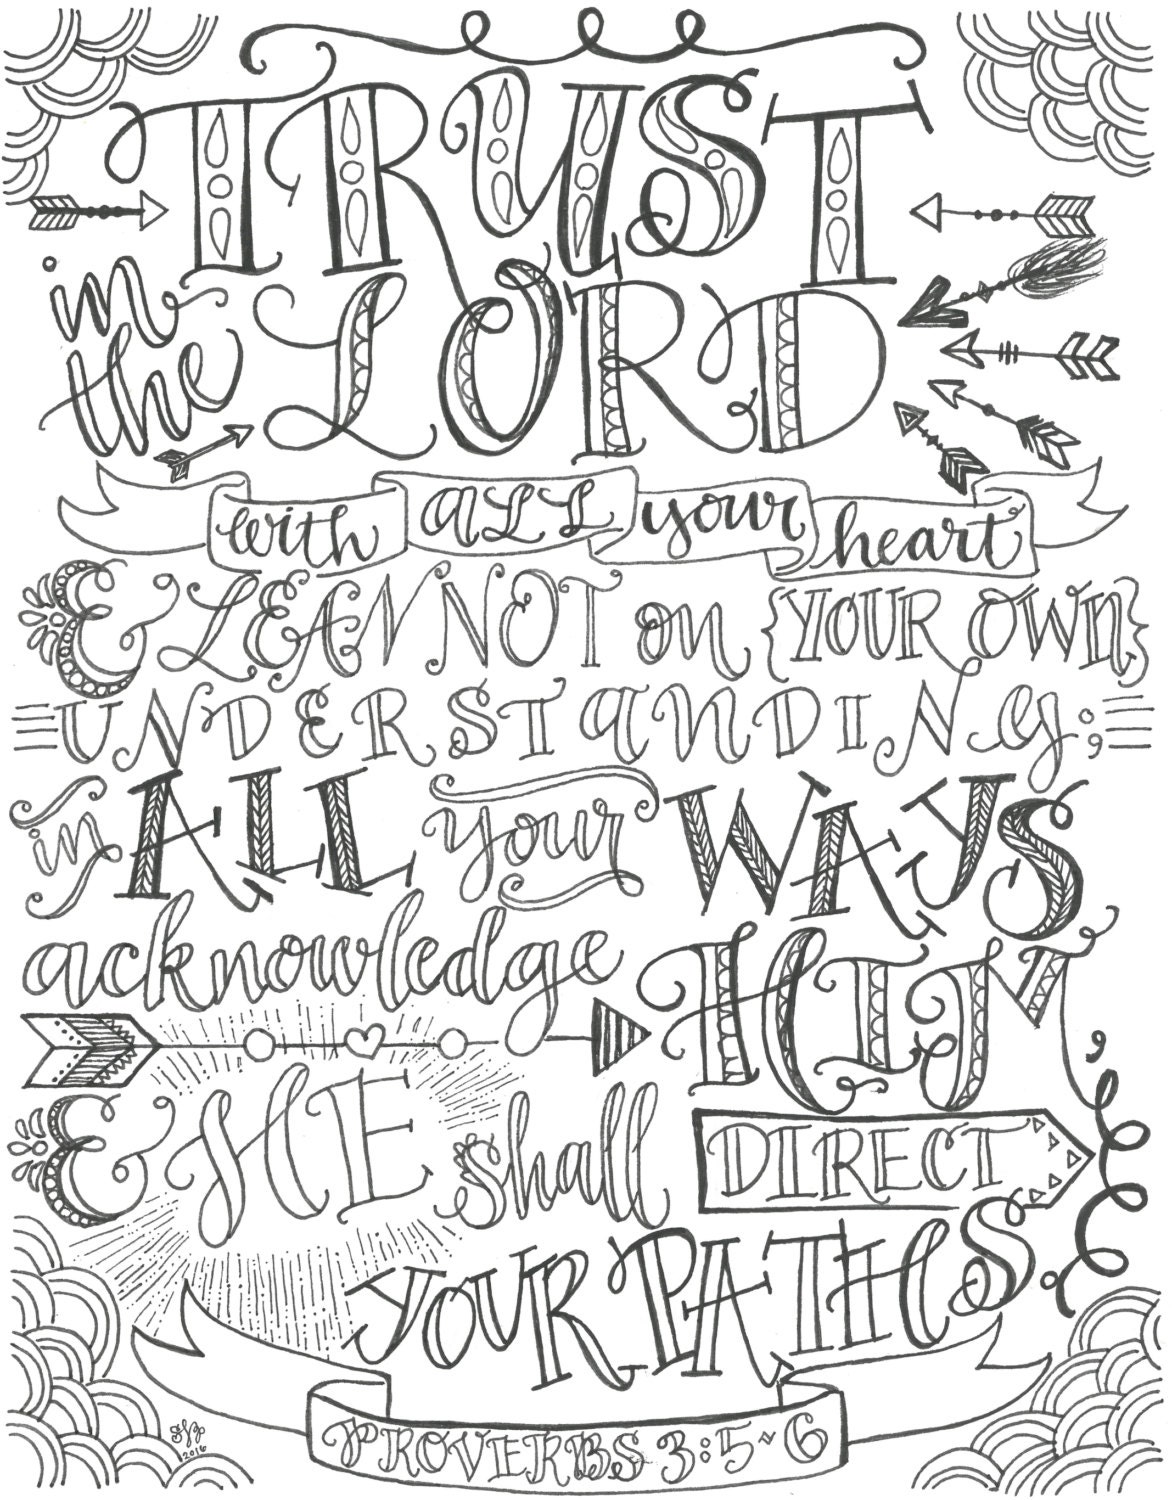 TRUST
in the LORD
with ALL your heart
& LEAN NOT on {YOUR OWN}
UNDERSTANDING;
in ALL your WAYS
acknowledge HIM,
& HE shall DIRECT
YOUR PATHS
PROVERBS 3:5~6
2016